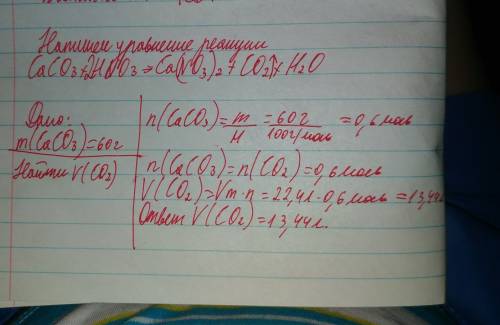 Напишем уравнение реакции
CaCO3+2HNO3→Ca(NO3)2+CO2↑+H2O
Дано:
m(CaCO3)=60г
Найти V(CO2)
n(CaCO3)=m/M=60г/100г/моль=0,6моль
n(CaCO3)=n(CO2)=0,6моль
V(CO2)=Vm·n=22,4л·0,6моль=13,44л
Ответ V(CO2)=13,44л.